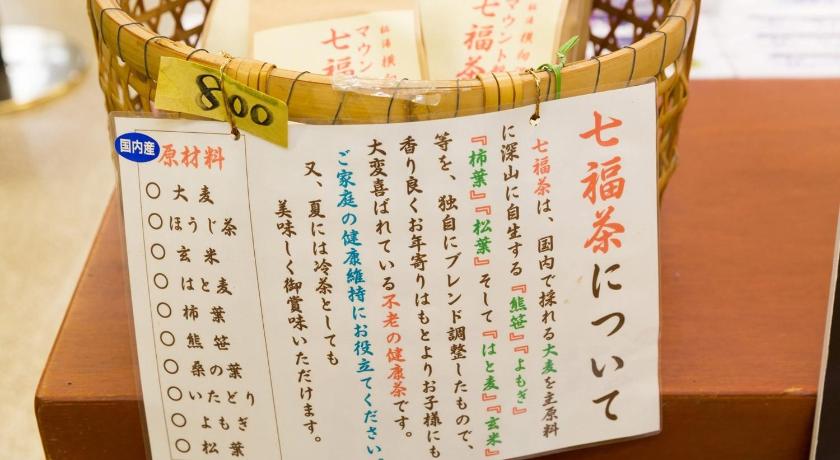 七福茶について
七福茶は、国内で採れる大麦を主原料
に深山に自生する『熊笹』『よもぎ』
『柿葉』『松葉』そして『はと麦』『玄米』
等を、独自にブレンド調整したもので、
香り良くお年寄りはもとよりお子様にも
大変喜ばれている不老の健康茶です。
ご家庭の健康維持にお役立てください。
又、夏には冷茶としても
美味しく御賞味いただけます。
国内産
原材料
○大麦
○ほうじ茶
○玄米
○はと麦
○柿葉
○熊笹
○桑の葉
○いたどり
○よもぎ
○松葉
800
マウント
七福
マウント
七福茶